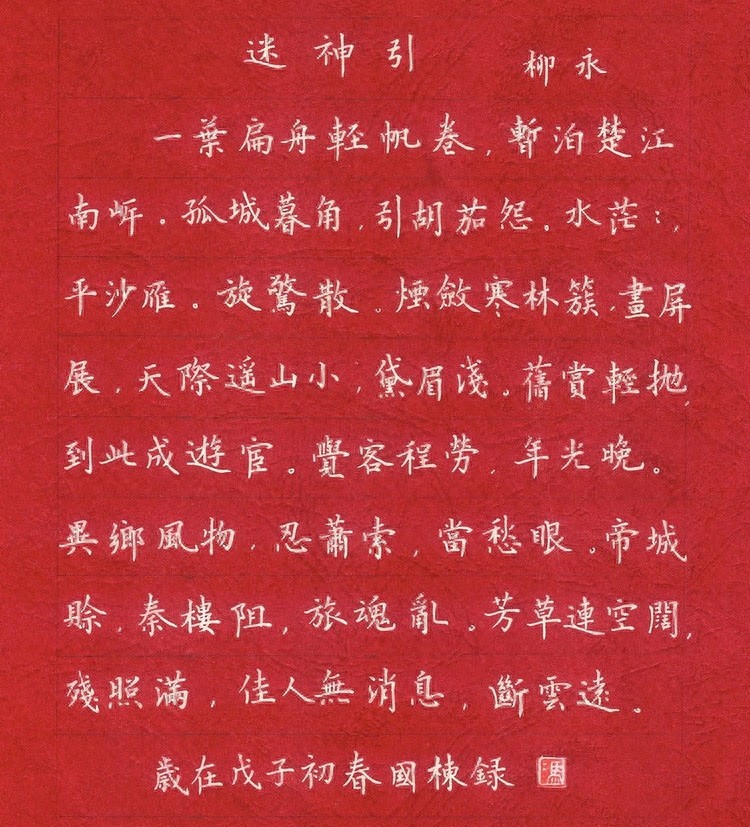 迷神引 柳永
一葉扁舟輕帆卷,暫泊楚江
南岸。孤城暮角,引胡茄怨。水茫:,
平沙雁。旋驚散。煙斂寒林簇,畫屏
展,天際遥山小,黛眉淺。舊賞輕抛,
到此成遊宦。覺客程勞,年光晚。
異鄉風物,忍蕭索,當愁眼。帝城
賒,秦樓阻,旅魂亂。芳草連空闊,
殘照滿,佳人無消息,斷雲遠。
歲在戊子初春國棟録 馮